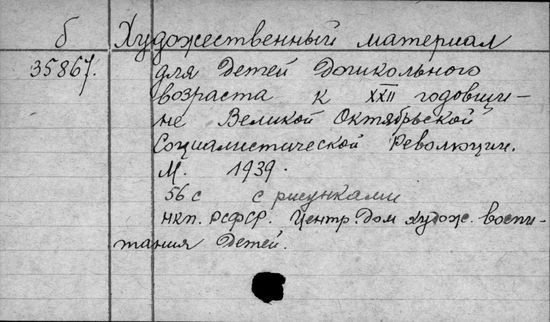 б Художественный материал
35867. для детей дошкольного
возраста к XXII годовщи-
не Великой Октябрьской
Социалистической Революции.
М. 1939.
56 с с рисунками
НКП. РСФСР. Центр. Дом худож. воспи-
тания детей.